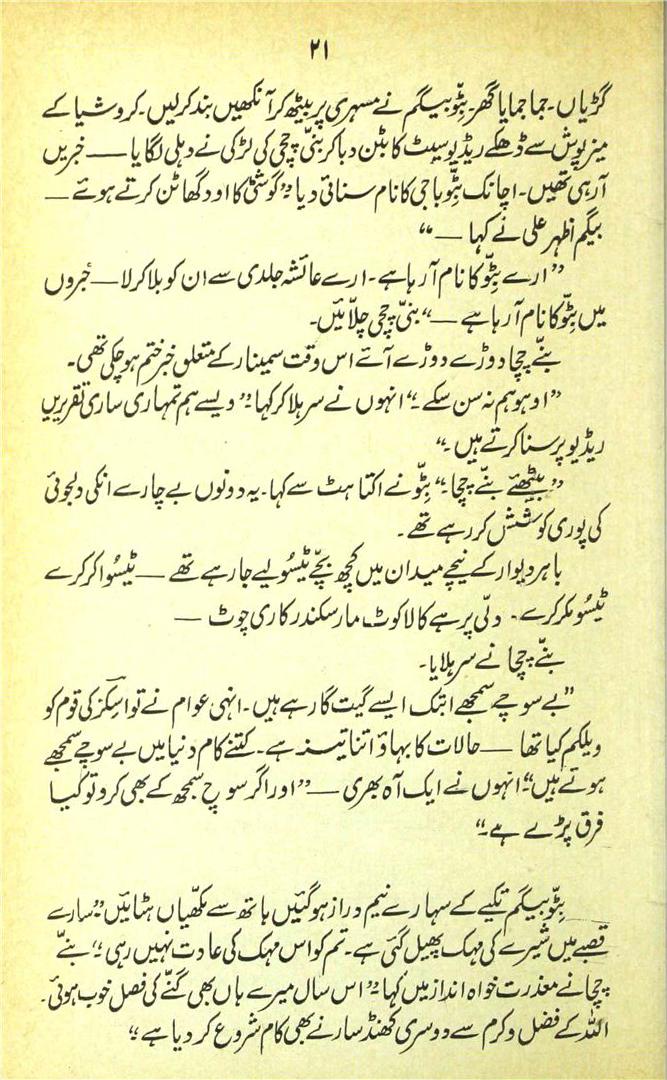 ۲۱
گڑیاں۔ جما جمایا گھر۔ بِٹّو بیگم نے مسہری پر بیٹھ کر آنکھیں بند کر لیں۔ کروشیا کے
میز پوش سے ڈھکے ریڈیو سیٹ کا بٹن دبا کر بنّی چچی کی لڑکی نے دہلی لگایا — خبریں
آرہی تھیں۔ اچانک بِٹّو باجی کا نام سنائی دیا۔ "گوشٹی کا اودگھاٹن کرتے ہوئے —
بیگم اظہر علی نے کہا — "
"ارے بِٹّو کا نام آرہا ہے۔ ارے عائشہ جلدی سے ان کو بلا کر لا — خبروں
میں بِٹّو کا نام آرہا ہے —" بنّی چچی چلّائیں۔
بنّے چچا دوڑے دوڑے آئے اس وقت سمینار کے متعلق خبر ختم ہوچکی تھی۔
"اوہو ہم نہ سن سکے۔" انہوں نے سر ہلا کر کہا۔ "ویسے ہم تمہاری ساری تقریریں
ریڈیو پر سنا کرتے ہیں۔"
"بیٹھئے بنّے چچا۔" بِٹّو نے اکتاہٹ سے کہا۔ یہ دونوں بے چارے انکی دلجوئی
کی پوری کوشش کر رہے تھے۔
باہر دیوار کے نیچے میدان میں کچھ بچّے ٹیسُو لیے جارہے تھے — ٹیسُو اکر کرے
ٹیسُو مکر کرے۔ دلّی پر ہے کالا کوٹ مار سکندر کاری چوٹ —
بنّے چچا نے سر ہلایا۔
"بے سوچے سمجھے ابتک ایسے گیت گارہے ہیں۔ انہی عوام نے تو اسکنر کی قوم کو
ویلکم کیا تھا — حالات کا بہاؤ اتنا تیز ہے۔ کتنے کام دنیا میں بے سوچے سمجھے
ہوتے ہیں" انہوں نے ایک آہ بھری — "اور اگر سوچ سمجھ کے بھی کرو تو کیا
فرق پڑے ہے۔"
بِٹّو بیگم تکیے کے سہارے نیم دراز ہوگئیں ہاتھ سے مکھّیاں ہٹائیں "سارے
قصبے میں شیرے کی مہک پھیل گئی ہے۔ تم کو اس مہک کی عادت نہیں رہی۔" بنّے
چچا نے معذرت خواہ انداز میں کہا۔ "اس سال میرے ہاں بھی گنّے کی فصل خوب ہوئی۔
اللہ کے فضل و کرم سے دوسری کھنڈسار نے بھی کام شروع کردیا ہے۔"